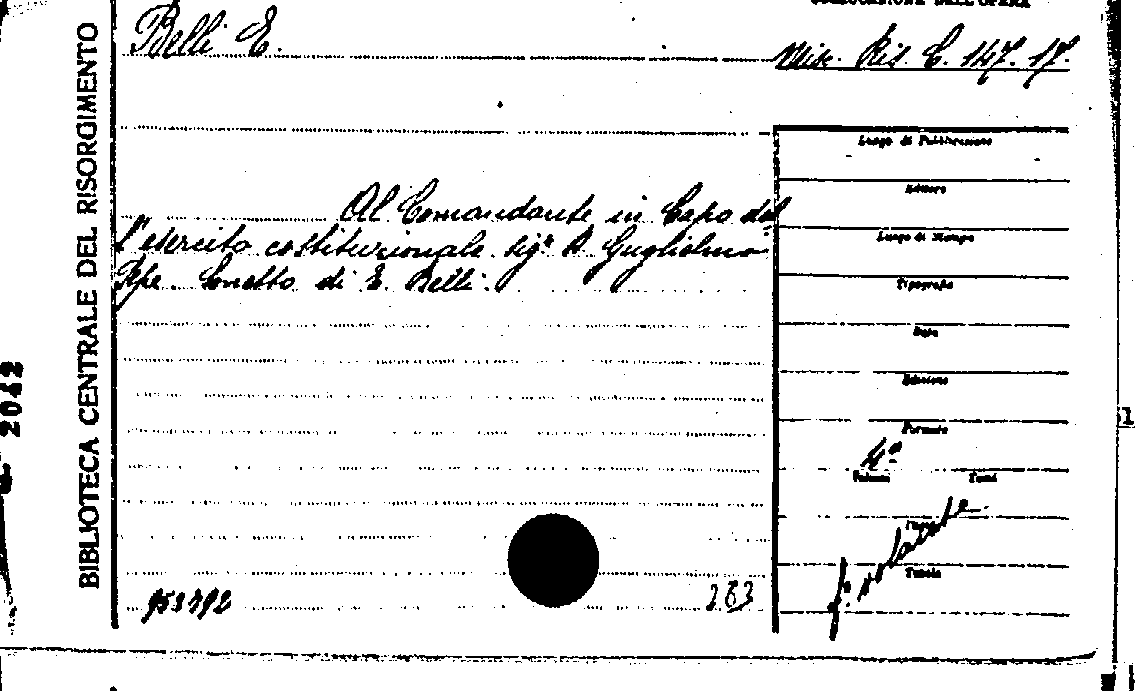 COLLOCAZIONE DELL'OPERA
Belli E.
Misc. Ris. C. 147. 17.
BIBLIOTECA CENTRALE DEL RISORGIMENTO
Al Comandante in Capo del
l'esercito costituzionale sigr D. Guglielmo
Pepe. Sonetto di E. Belli.
Luogo di Pubblicazione
Editore
Luogo di Stampa
Tipografia
Data
Edizione
Formato
4º
Volumi Tomi
Pagine
fº volante
Tavole
283
2042